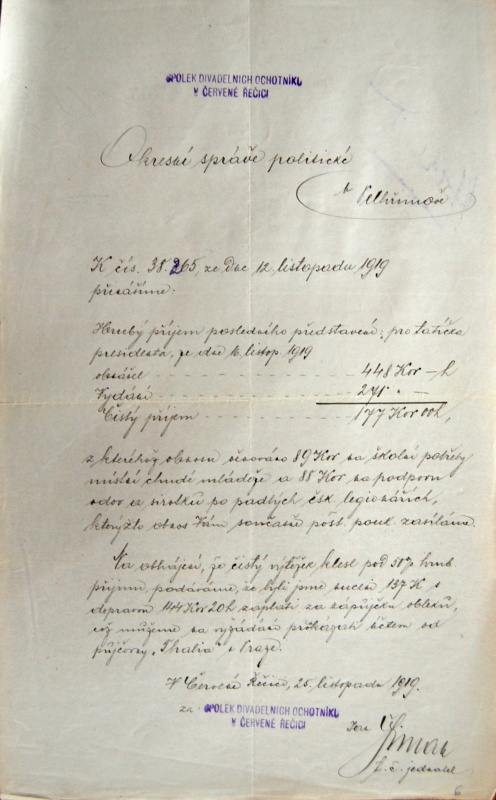 SPOLEK DIVADELNÍCH OCHOTNÍKŮ
V ČERVENÉ ŘEČICI
Okresní správě politické
v Pelhřimově
K čís. 38.265, ze dne 12. listopadu 1919
přinášíme:
Hrubý příjem posledního představení: pro tatíčka
presidenta, ze dne 16. listop. 1919
obnášel 448 Kor – h
Vydání 271 " –
Čistý příjem 177 Kor 00 h,
z kteréhož obnosu věnováno 89 Kor na školní potřeby
místní chudé mládeže a 88 Kor na podporu
vdov a sirotků po padlých čsk. legionářích,
kterýžto obnos Vám současně pošt. pouk. zasíláme.
Na obhájení, že čistý výtěžek klesl pod 50% hrub.
příjmu, podáváme, že byli jsme nuceni 137 K s
dopravou 144 Kor 20 h zaplatit za zápůjčku obleků,
což můžeme na vyžádání prokázati účtem od
půjčovny „Thalia" v Praze.
V Červené Řečici, 25. listopadu 1919.
za SPOLEK DIVADELNÍCH OCHOTNÍKŮ
V ČERVENÉ ŘEČICI
t. č. jednatel
6